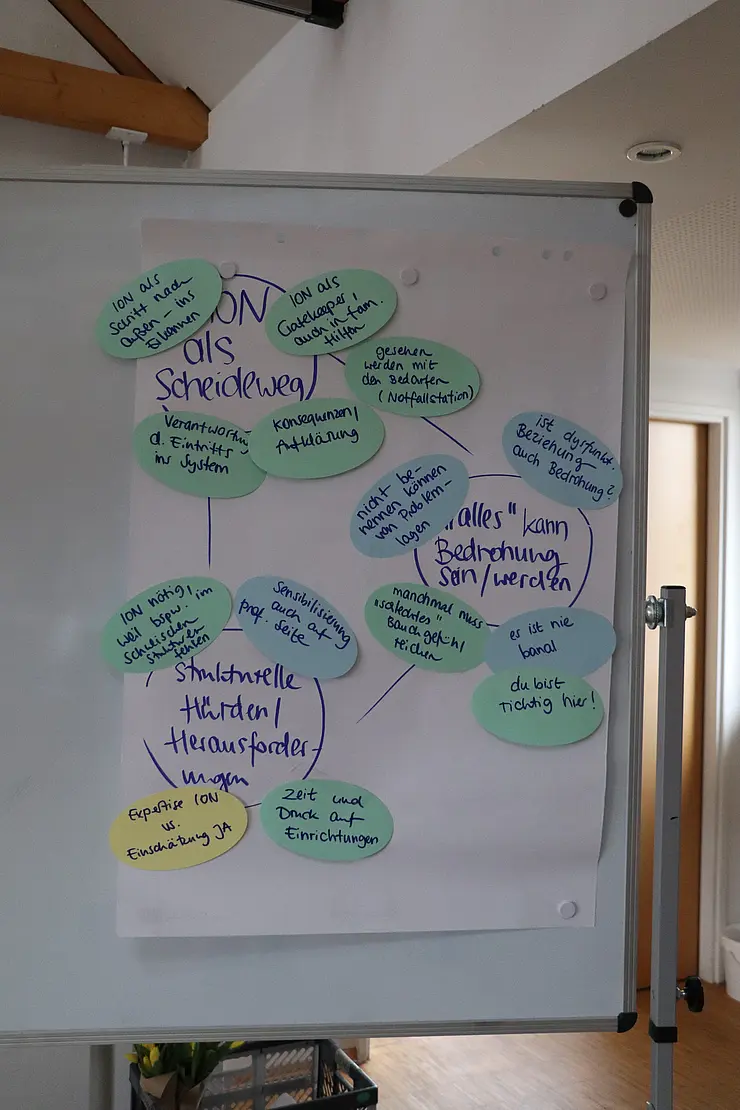 ION als
Schritt nach
außen – ins
Erkennen
ION
als
Scheideweg
ION als
Gatekeeper,
auch in fam.
Hilfen
gesehen
werden mit
den Bedarfen
(Notfallstation)
Verantwortung
d. Eintritts
ins System
Konsequenzen/
Aufklärung
ist dysfunkt.
Beziehung
auch Bedrohung?
nicht be-
nennen können
von Problem-
lagen
"alles" kann
Bedrohung
sein/werden
manchmal muss
"schlechtes"
Bauchgefühl
reichen
es ist nie
banal
du bist
richtig hier!
ION nötig,
weil bspw. im
schulischen
strukturen
fehlen
Sensibilisierung
auch auf
prof. Seite
Strukturelle
Hürden/
Herausforder-
ungen
Expertise ION
vs.
Einschätzung JA
Zeit und
Druck auf
Einrichtungen